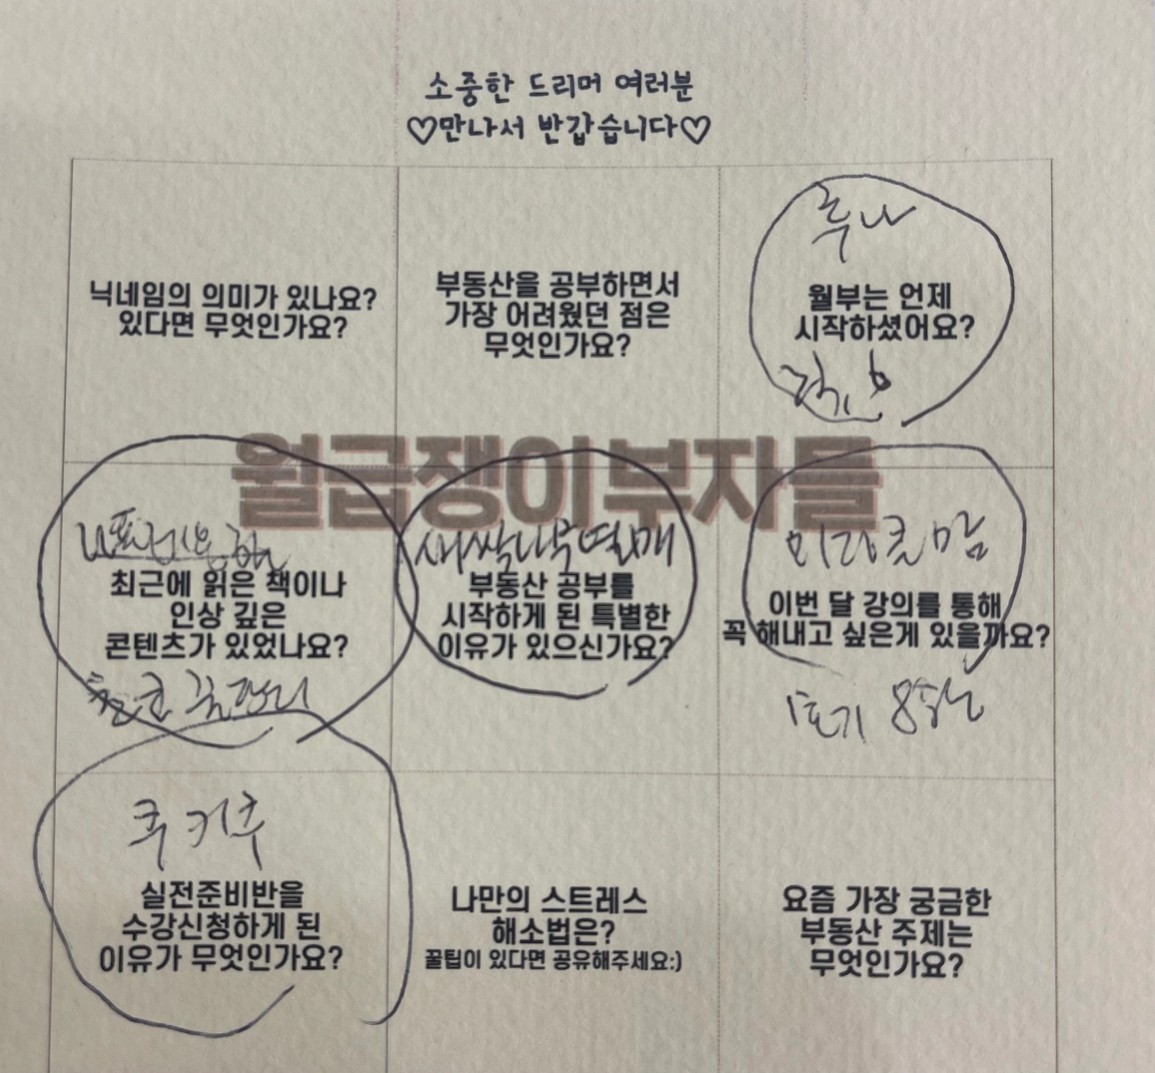 소중한 드리머 여러분
♡만나서 반갑습니다♡
닉네임의 의미가 있나요?
있다면 무엇인가요?
부동산을 공부하면서
가장 어려웠던 점은
무엇인가요?
루나
월부는 언제
시작하셨어요?
월급쟁이부자들
최근에 읽은 책이나
인상 깊은
콘텐츠가 있었나요?
새싹나무열매
부동산 공부를
시작하게 된 특별한
이유가 있으신가요?
미라클맘
이번 달 강의를 통해
꼭 해내고 싶은게 있을까요?
1호기
쿠키츄
실전준비반을
수강신청하게 된
이유가 무엇인가요?
나만의 스트레스
해소법은?
꿀팁이 있다면 공유해주세요:)
요즘 가장 궁금한
부동산 주제는
무엇인가요?